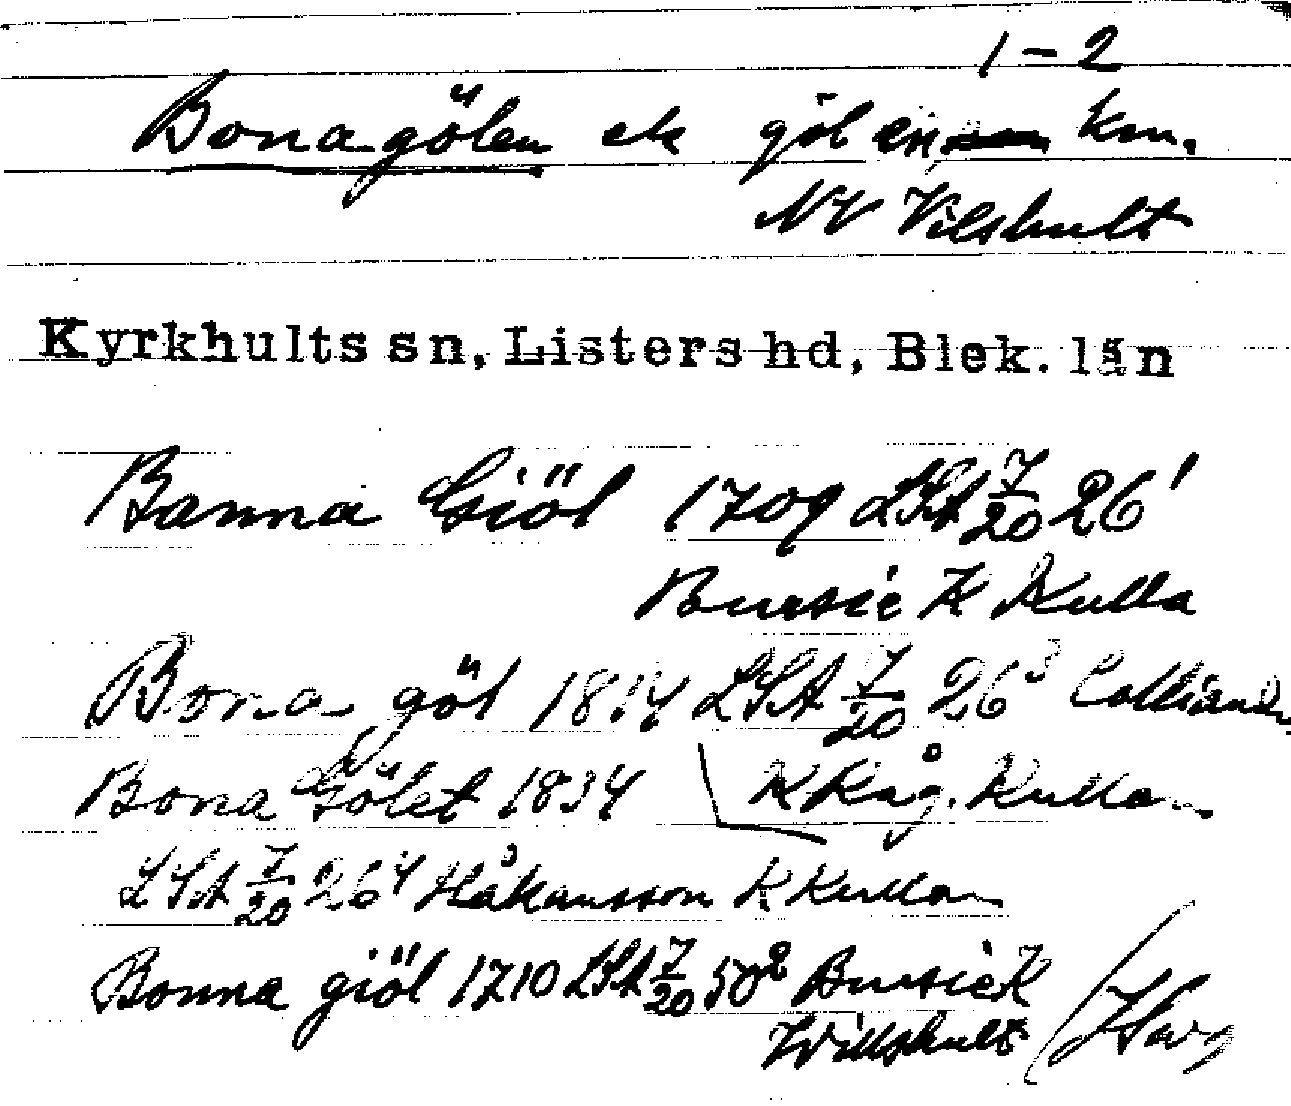 1-2
Bonagölen ek göl en km.
NV Vilshult
Kyrkhults sn, Listers hd, Blek. län
Banna Giöl 1709 LSA 7/20 26¹
Bursie K Kulla
Bona göl 1814 LSA 7/20 26³ Colliand
Bona Gölet 1834 K Råg. Kulla
LSA 7/20 26⁴ Håkansson K Kulla
Bonna giöl 1710 LSA 7/20 50² Bursie K
Willshult